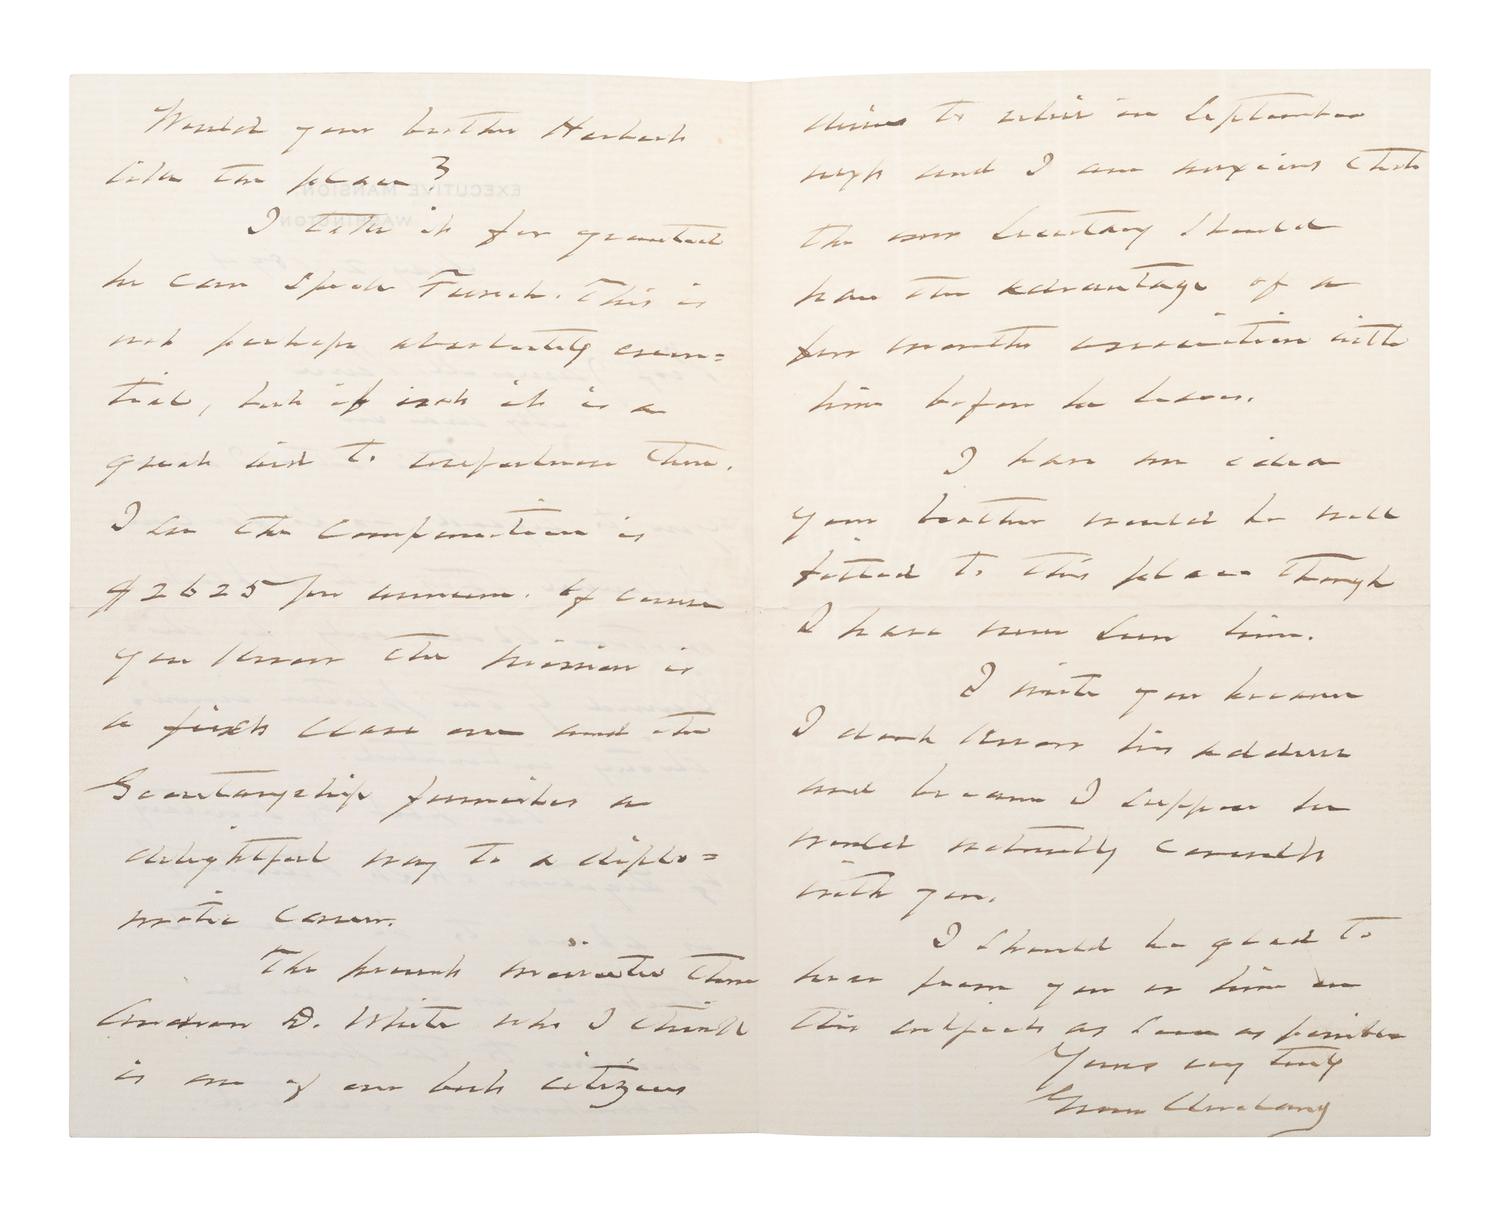 Would your brother Herbert
like the place?
I take it for granted
he can speak French. This is
not perhaps absolutely essen=
tial, but if not it is a
great aid to usefulness there.
I see the compensation is
$2625 per annum. Of course
you know the mission is
a first class one and the
Secretaryship furnishes a
delightful way to a diplo=
matic career.
The present minister there
Andrew D. White who I think
is one of our best citizens
desires to retire in September
next and I am anxious that
the new Secretary should
have the advantage of a
few months association with
him before he leaves.
I have an idea
your brother would be well
fitted to this place though
I have never seen him.
I write you because
I don't know his address
and because I suppose he
would naturally consult
with you.
I should be glad to
hear from you or him on
this subject as soon as possible
Yours very truly
Grover Cleveland
EXECUTIVE MANSION,
WASHINGTON